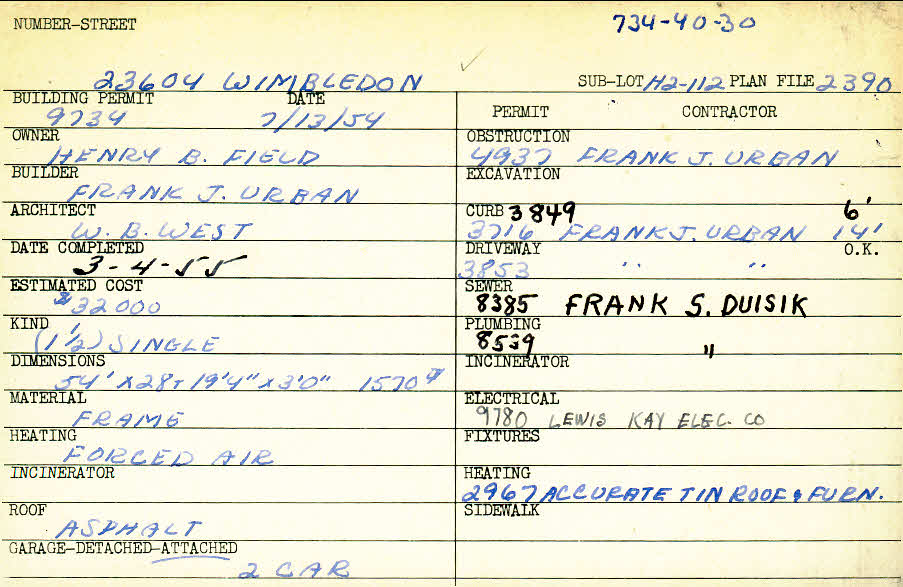 NUMBER-STREET 734-40-30
23604 WIMBLEDON SUB-LOT H2-112 PLAN FILE 2390
BUILDING PERMIT DATE PERMIT CONTRACTOR
9734 7/13/54
OWNER OBSTRUCTION
HENRY B. FIELD 4937 FRANK J. URBAN
BUILDER EXCAVATION
FRANK J. URBAN
ARCHITECT CURB 3849 6'
W. B. WEST 3716 FRANK J. URBAN 14'
DATE COMPLETED DRIVEWAY O.K.
3-4-55 3853 " "
ESTIMATED COST SEWER
$32000 8385 FRANK S. DUISIK
KIND PLUMBING
(1 1/2) SINGLE 8539 "
DIMENSIONS INCINERATOR
54' X 28 + 19'4" X 3'0" 1570
MATERIAL ELECTRICAL
FRAME 9780 LEWIS KAY ELEC. CO
HEATING FIXTURES
FORCED AIR
INCINERATOR HEATING
2967 ACCURATE TIN ROOF & FURN.
ROOF SIDEWALK
ASPHALT
GARAGE-DETACHED-ATTACHED
2 CAR